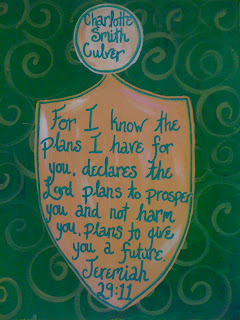 Charlotte
Smith
Culver
For I know the
plans I have for
you, declares the
Lord plans to prosper
you and not harm
you, plans to give
you a future.
Jeremiah
29:11